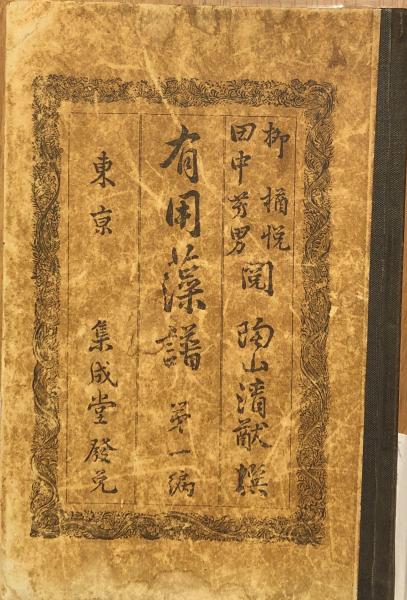 柳 楢悦
田中芳男 閲 陶山清猷 撰
有用藻譜 第一編
東京 集成堂發兌